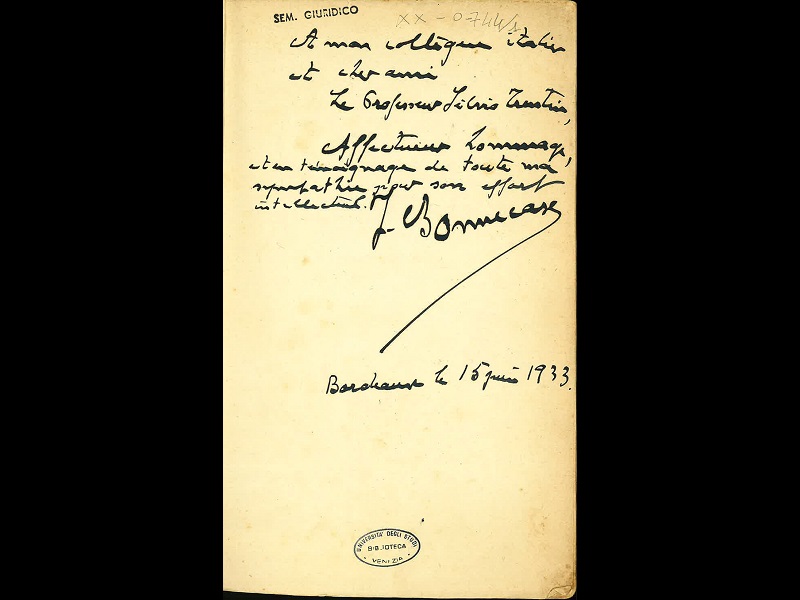 SEM. GIURIDICO
XX-0744/1
A mon collègue italien
et cher ami
Le Professeur Silvio Trentin,
Affectueux hommage,
et en témoignage de toute ma
sympathie pour son effort
intellectuel.
J. Bonnecase
Bordeaux le 15 juin 1933.
UNIVERSITA' DEGLI STUDI
BIBLIOTECA
VENEZIA